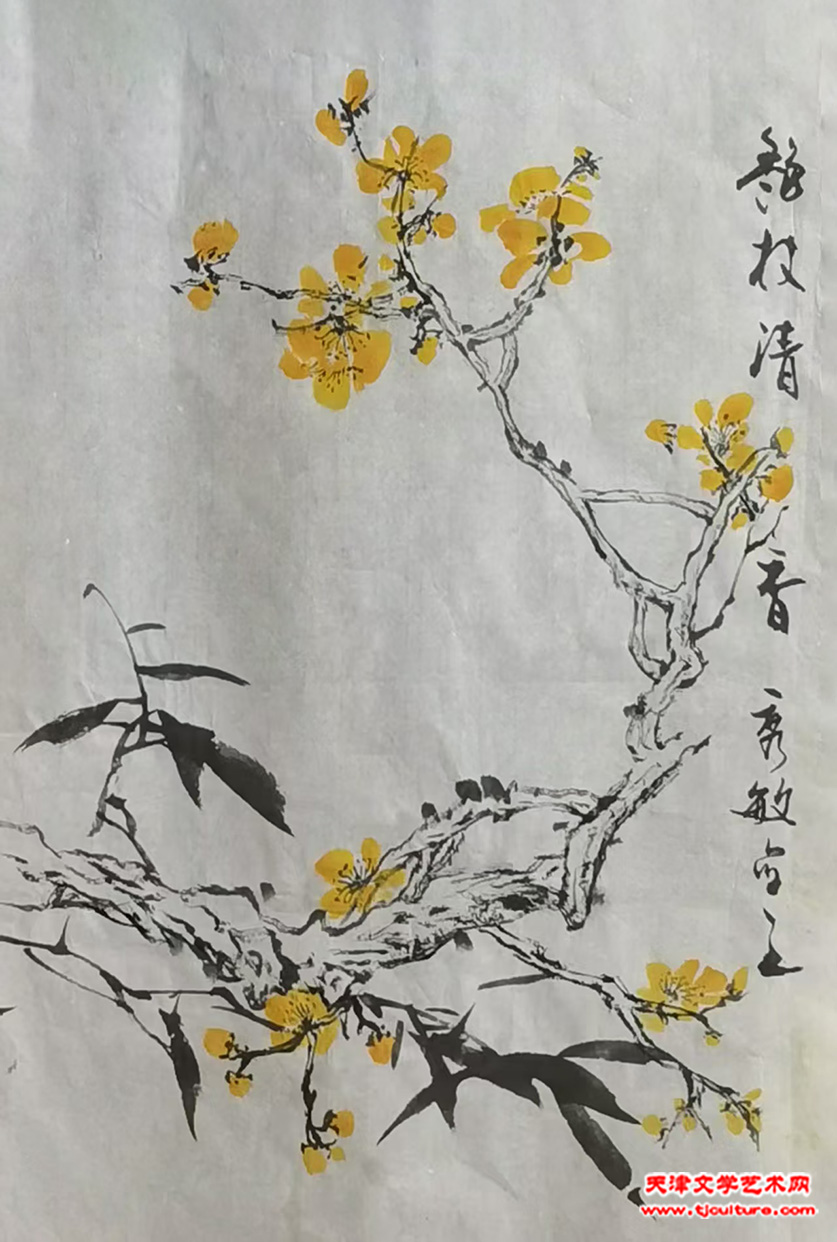 枝清香 敏 之
天津文学艺术网
www.tjculture.com